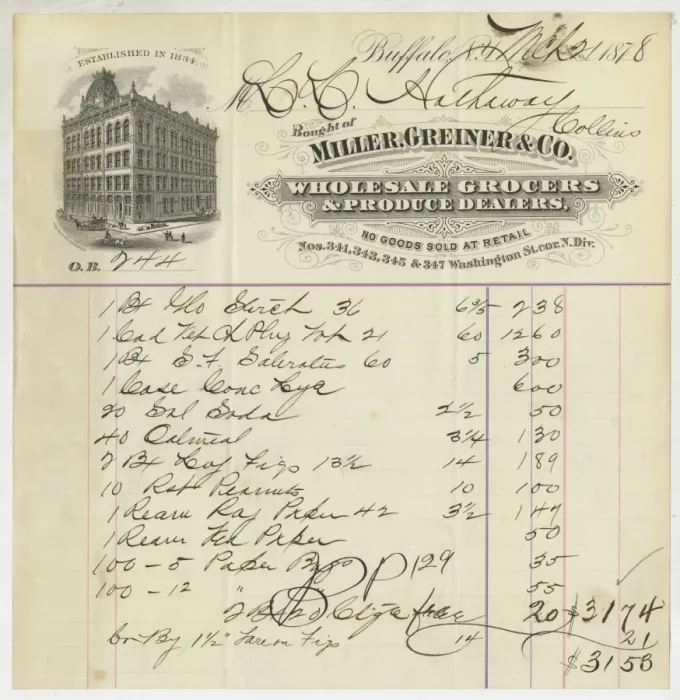 ESTABLISHED IN 1834.
Buffalo, N.Y. Mch 21 1878
M C. C. Hathaway
Collins
Bought of
MILLER, GREINER & CO.
WHOLESALE GROCERS
& PRODUCE DEALERS,
NO GOODS SOLD AT RETAIL
Nos. 341, 343, 345 & 347 Washington St. cor. N. Div.
O.B. 244
1 Bx Glo Starch 36 238
1 Cad Plug Tob 21 60 1260
1 Bx Saleratus 60 5 300
1 Case Conc Lye 600
20 Sal Soda 2½ 50
40 Oatmeal 3¼ 130
2 Bx Figs 13½ 14 189
10 Rst Peanuts 10 100
1 Ream Rag Paper 42 3½ 147
1 Ream Paper 50
100 - 5 Paper Bags 35
100 - 12 " 55
PP 129
20 $3174
Cr By 1½" Tare on Figs 14 21
$3153